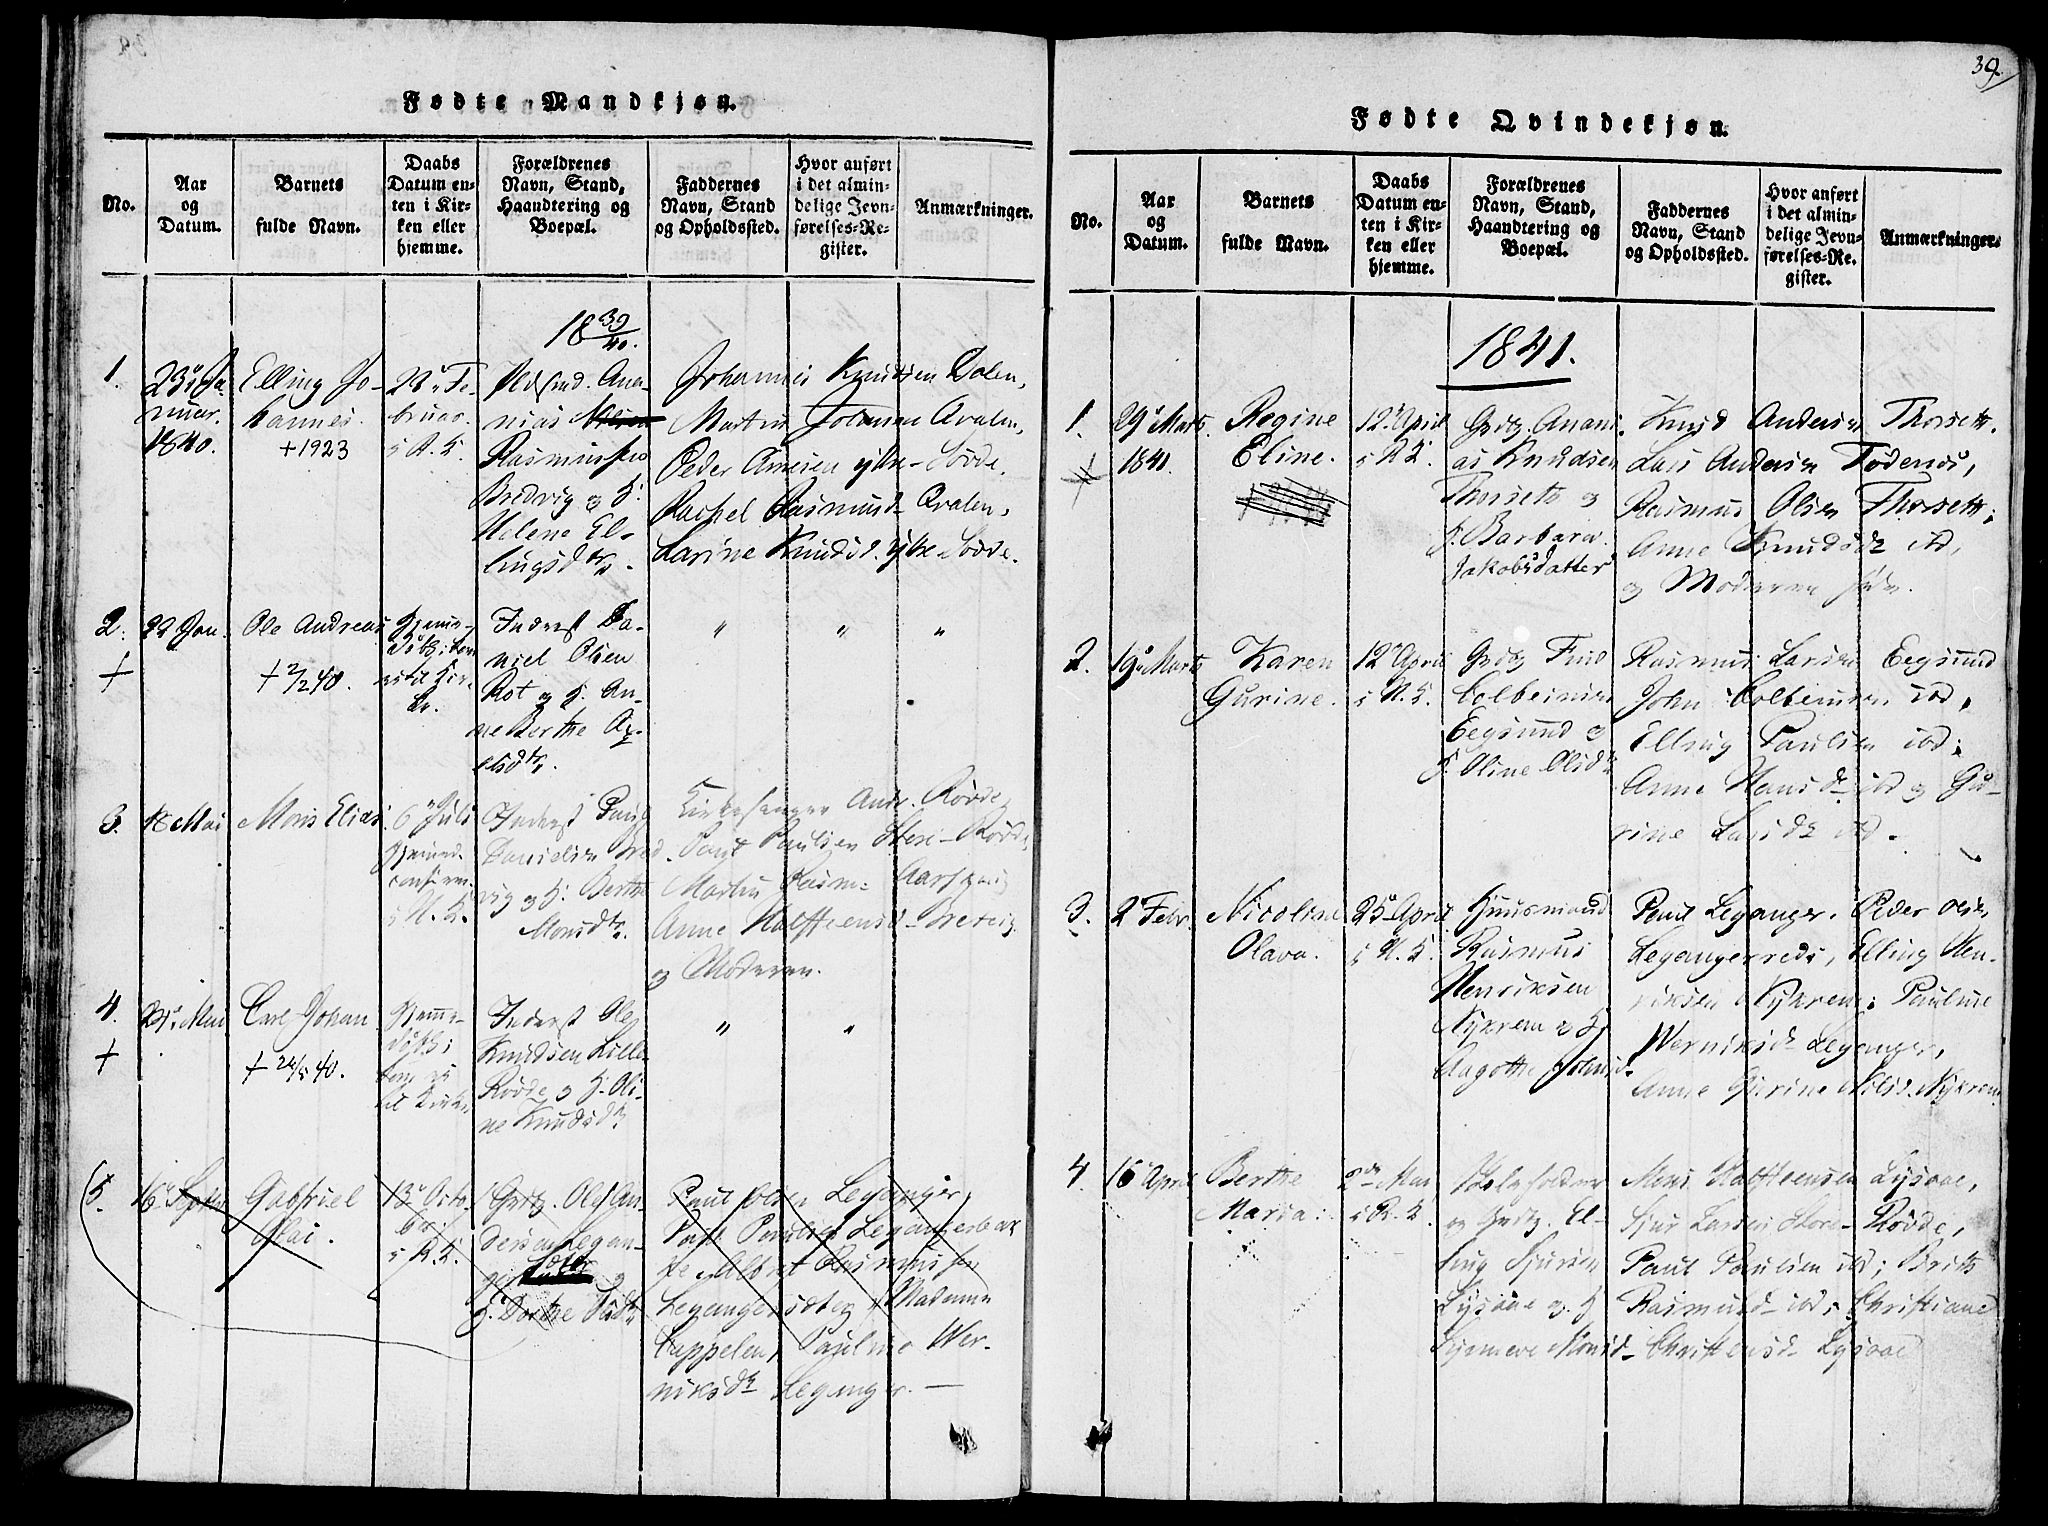 Fødte Mandkjøn.
No.
Aar
og
Datum.
Barnets
fulde Navn.
Daabs
Datum en-
ten i Kir-
ken eller
hjemme.
Forældrenes
Navn, Stand,
Haandtering og
Boepæl.
Faddernes
Navn, Stand
og Opholdssted.
Hvor anført
i det almin-
delige Jevn-
førelses-Re-
gister.
Anmærkninger.
18 39/40.
1.
23 Ja-
nuar
1840.
Elling Jo-
hannes.
+ 1923
23 Fe-
bruar
i R. K.
Ana-
nias
Rasmussen
Bredvig og H.
Helene El-
lingsdtr.
Johannes Knudsen Dalen,
Martin Johansen Qvalen,
Peder Amesen ytre-Sövde,
Rachel Rasmusd. Qvalen,
Larine Knudsd. ytre-Sövde.
2.
+
22 Jan.
Ole Andreas
+ 2/2 40.
Hjemme-
döbt;
Kir-
ke.
Inderst Da-
niel Olsen
Rot og H. An-
ne Berthe Ax-
elsdtr.
" " "
3.
18 Mai
Mons Elias
6 Juli
Hjemmed.
confirm.
i R. K.
Inderst Paul
Danielsen Bred-
vig og H. Berthe
Monsdtr.
Kirkesanger And. Rövde,
Paul Paulsen Store-Rövde,
Martin Rasm.
Anne Halfteensd.
og Moderen.
4.
+
24 Mai
Carl Johan
+ 24/5 40.
Hjemme-
döbt;
til Kirke
Inderst Ole
Knudsen Lille-
Rövde og H. Oli-
ne Knudsdtr.
" "
5.
16 Septbr
Gabriel
Olai.
13 Octo-
ber
i R. K.
Grdbr. Ole An-
dersen Legan-
ger og
H. Dorthe
Paul Olsen Leganger,
Paul Paulsen Legangerbak-
ke, Albert Rasmussen
Leganger Madame
Cappelen, Pauline Wer-
niksdtr Leganger. —
39.
Fødte Qvindekjøn.
No.
Aar
og
Datum.
Barnets
fulde Navn.
Daabs
Datum en-
ten i Kir-
ken eller
hjemme.
Forældrenes
Navn, Stand,
Haandtering og
Boepæl.
Faddernes
Navn, Stand
og Opholdssted.
Hvor anført
i det almin-
delige Jevn-
førelses-Re-
gister.
Anmærkninger.
1841.
1.
29 Marts
1841.
Regine
Eline.
12 April
i R. K.
Grdbr. Anani-
as Knudsen
Thorseth og
H. Barbara
Jakobsdatter
Knud Andersen Thorseth.
Lars Andersen Födenös,
Rasmus Olsen Thorseth;
Anne Knudsdtr ibd,
og Moderen
2.
19 Marts
Karen
Gurine.
12 April
i R. K.
Grdbr Find
Colbeinsen
Eegsund og
H. Oline Olsdtr
Rasmus Larsen Eegsund
John Colbeinsen ibd,
Elling Paulsen ibd;
Anne Hansd. ibd og Gu-
rine Larsdtr ibd.
3.
2 Febr.
Nicoline
Olava.
25 April
i R. K.
Huusmand
Rasmus
Henriksen
Nykrem og H.
Aagothe
Paul Leganger, Peder Olsen
Elling Hen-
riksen Nykrem; Pauline
Werniksd. Leganger,
Anne Gurine Nilsd. Nykrem
4.
16 April
Berthe
Maria.
2den Mai
i R. K.
og Grdbr. El-
ling Sjursen
Lysaae og H.
Synneve Monsd.
Mons Halfteensen Lysaae,
Sjur Larsen Store-Rövde,
Paul Paulsen ibd; Brithe
Rasmusd. ibd; Christiane
Christensd. Lysaae